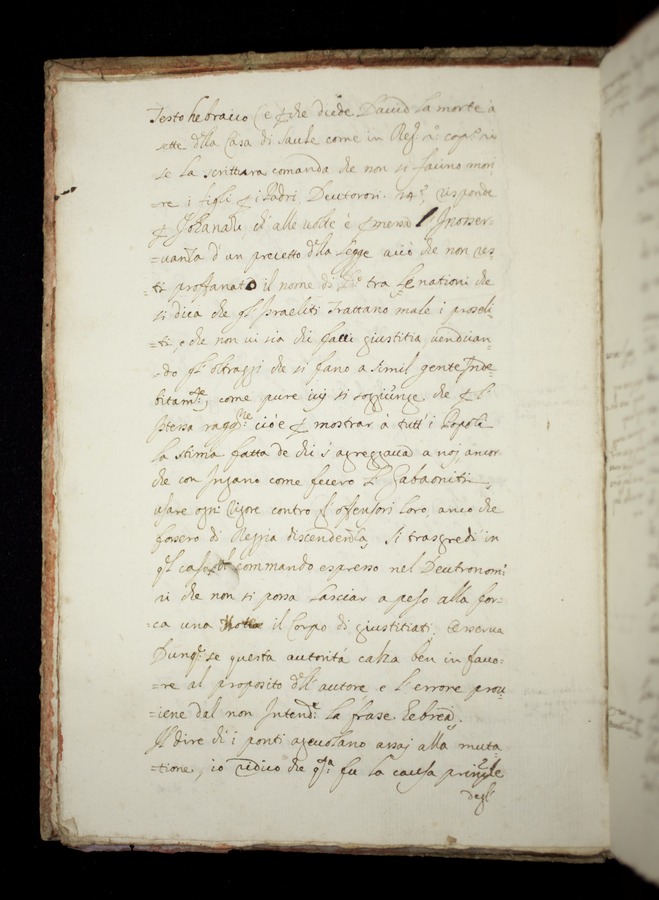 Testo hebraico (e p che diede David la morte à
sette della Casa di Saule come in Reg. 2º cap.
se la scrittura comanda che non si facino mori
=re i figli p i Padri, Deutoron. 24º, risponde
p Johanan, ch'alle volte è p messo l'Inosser=
=vanza d'un precetto della legge acciò che non res
=ti proffanato il nome di tra le nationi che
si dica che gl'Israeliti trattano male i proseli
=ti, e che non vi sia chi facci giustitia vendican
=do gl'oltraggi che si fano a simil gente Inde
bitam.te, come pure ivi si soggiunge che p l'
istessa ragg.ne cioè p mostrar à tutt'i Popoli
la stima fatta de chi s'agreggava a noi, ancor
che con Ingano come fecero l' Gabaoniti
usare ogni Rigore contro gl'offensori loro, anco che
fossero di Reggia discendenza, si trasgredì in
q.l caso il commando espresso nel Deutronomi
in che non si possa lasciar apeso alla for=
=ca una notte il Corpo di giustitiati. Osserva
Dunq.e se questa autorità calza ben in favo=
=re al proposito dell'autore, e l'errore prou
=iene dal non Intend.e la frase Hebrea.
Il dire ch'i ponti agevolano assaj alla muta
=tione, io ridico che q.ta fu la causa principle
degl'